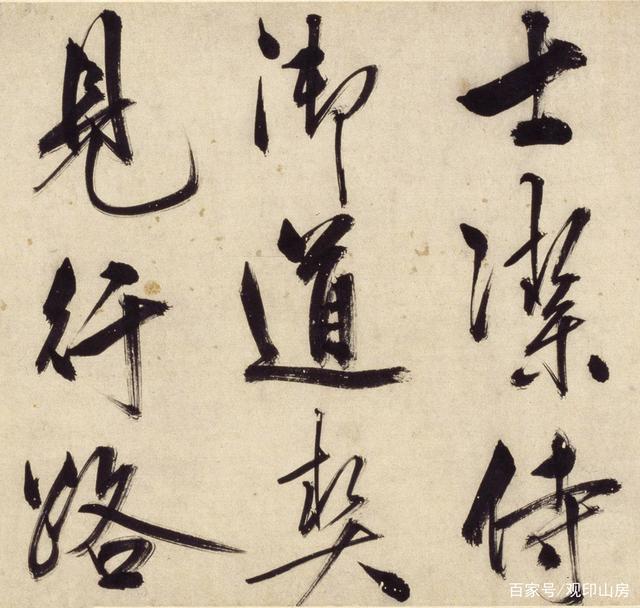 士潔侍
御道契
見行路
百家号/观印山房